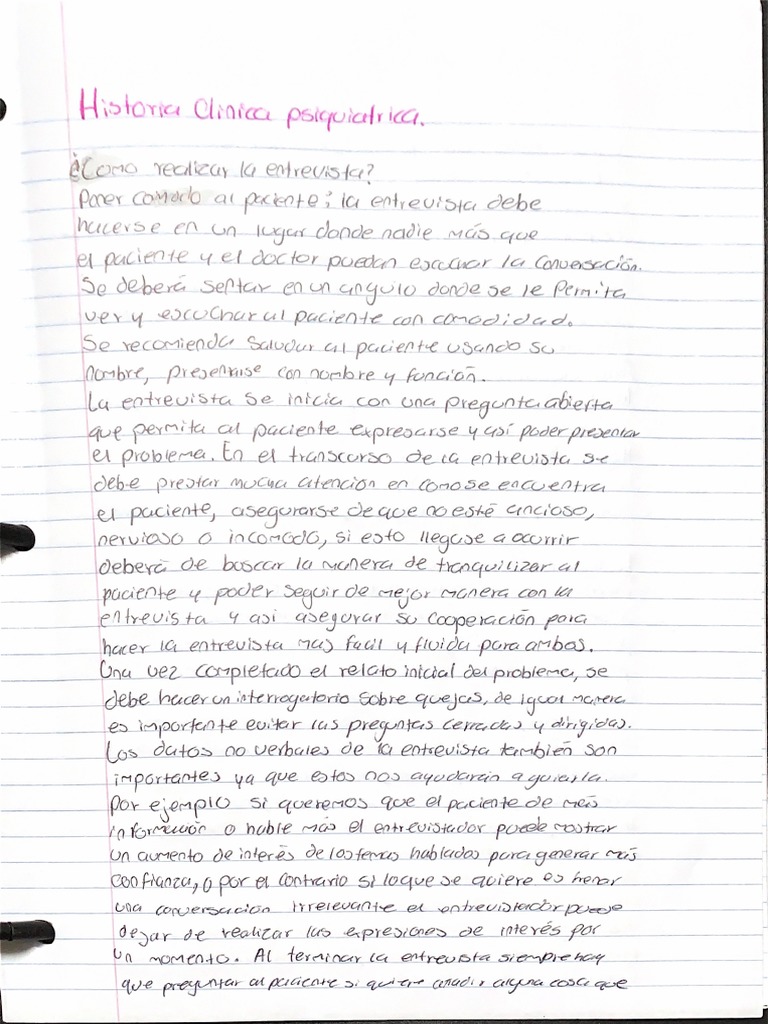 Historia Clinica psiquiatrica.
¿Como realizar la entrevista?
Poner comodo al paciente; la entrevista debe
hacerse en un lugar donde nadie más que
el paciente y el doctor puedan escuchar la conversación.
Se deberá sentar en un angulo donde se le Permita
ver y escuchar al paciente con comodidad.
Se recomienda saludar al paciente usando su
nombre, presentarse con nombre y función.
La entrevista se inicia con una pregunta abierta
que permita al paciente expresarse y así poder presentar
el problema. En el transcurso de la entrevista se
debe prestar mucha atención en como se encuentra
el paciente, asegurarse de que no esté ancioso,
nervioso o incomodo, si esto llegase a ocurrir
deberá de buscar la manera de tranquilizar al
paciente y poder seguir de mejor manera con la
entrevista y asi asegurar su cooperación para
hacer la entrevista mas facil y fluida para ambos.
Una vez completado el relato inicial del problema, se
debe hacer un interrogatorio sobre quejas, de igual manera
es importante evitar las preguntas cerradas y dirigidas.
Los datos no verbales de la entrevista también son
importantes ya que estos nos ayudarán a guiarla.
Por ejemplo si queremos que el paciente de más
información o hable más el entrevistador puede mostrar
un aumento de interés de los temas hablados para generar más
confianza, o por el contrario si lo que se quiere es
una conversación irrelevante el entrevistador puede
dejar de realizar las expresiones de interés por
un momento. Al terminar la entrevista siempre hay
que preguntar al paciente si quiere añadir alguna cosa que